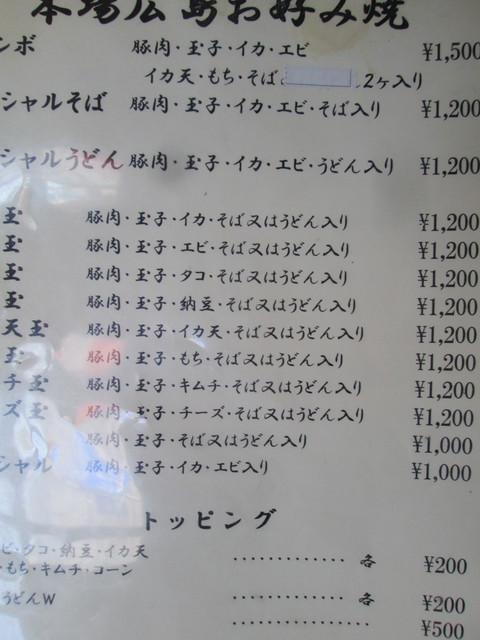 本場広島お好み焼
ンボ 豚肉・玉子・イカ・エビ ¥1,500
イカ天・もち・そば 2ヶ入り
シャルそば 豚肉・玉子・イカ・エビ・そば入り ¥1,200
シャルうどん 豚肉・玉子・イカ・エビ・うどん入り ¥1,200
玉 豚肉・玉子・イカ・そば又はうどん入り ¥1,200
玉 豚肉・玉子・エビ・そば又はうどん入り ¥1,200
玉 豚肉・玉子・タコ・そば又はうどん入り ¥1,200
玉 豚肉・玉子・納豆・そば又はうどん入り ¥1,200
天玉 豚肉・玉子・イカ天・そば又はうどん入り ¥1,200
玉 豚肉・玉子・もち・そば又はうどん入り ¥1,200
チ玉 豚肉・玉子・キムチ・そば又はうどん入り ¥1,200
ズ玉 豚肉・玉子・チーズ・そば又はうどん入り ¥1,200
豚肉・玉子・そば又はうどん入り ¥1,000
シャル 豚肉・玉子・イカ・エビ入り ¥1,000
トッピング
ビ・タコ・納豆・イカ天
・もち・キムチ・コーン ………… 各 ¥200
うどんW ………… 各 ¥200
………… ¥500